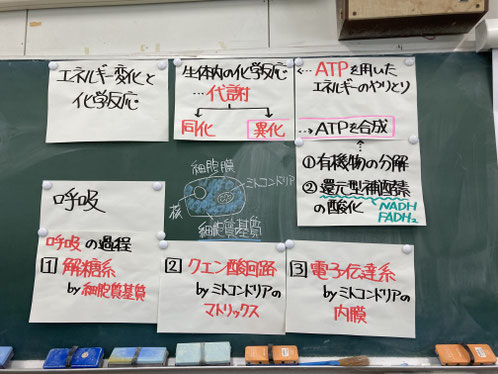 エネルギー変化と
化学反応
生体内の化学反応
…代謝
同化
異化
←…ATPを用した
エネルギーのやりとり
…→ATPを合成
①有機物の分解
②還元型補酵素
の酸化
NADH
FADH₂
細胞膜
ミトコンドリア
核
細胞質基質
呼吸
呼吸の過程
1 解糖系
by細胞質基質
2 クエン酸回路
byミトコンドリアの
マトリックス
3 電子伝達系
byミトコンドリアの
内膜